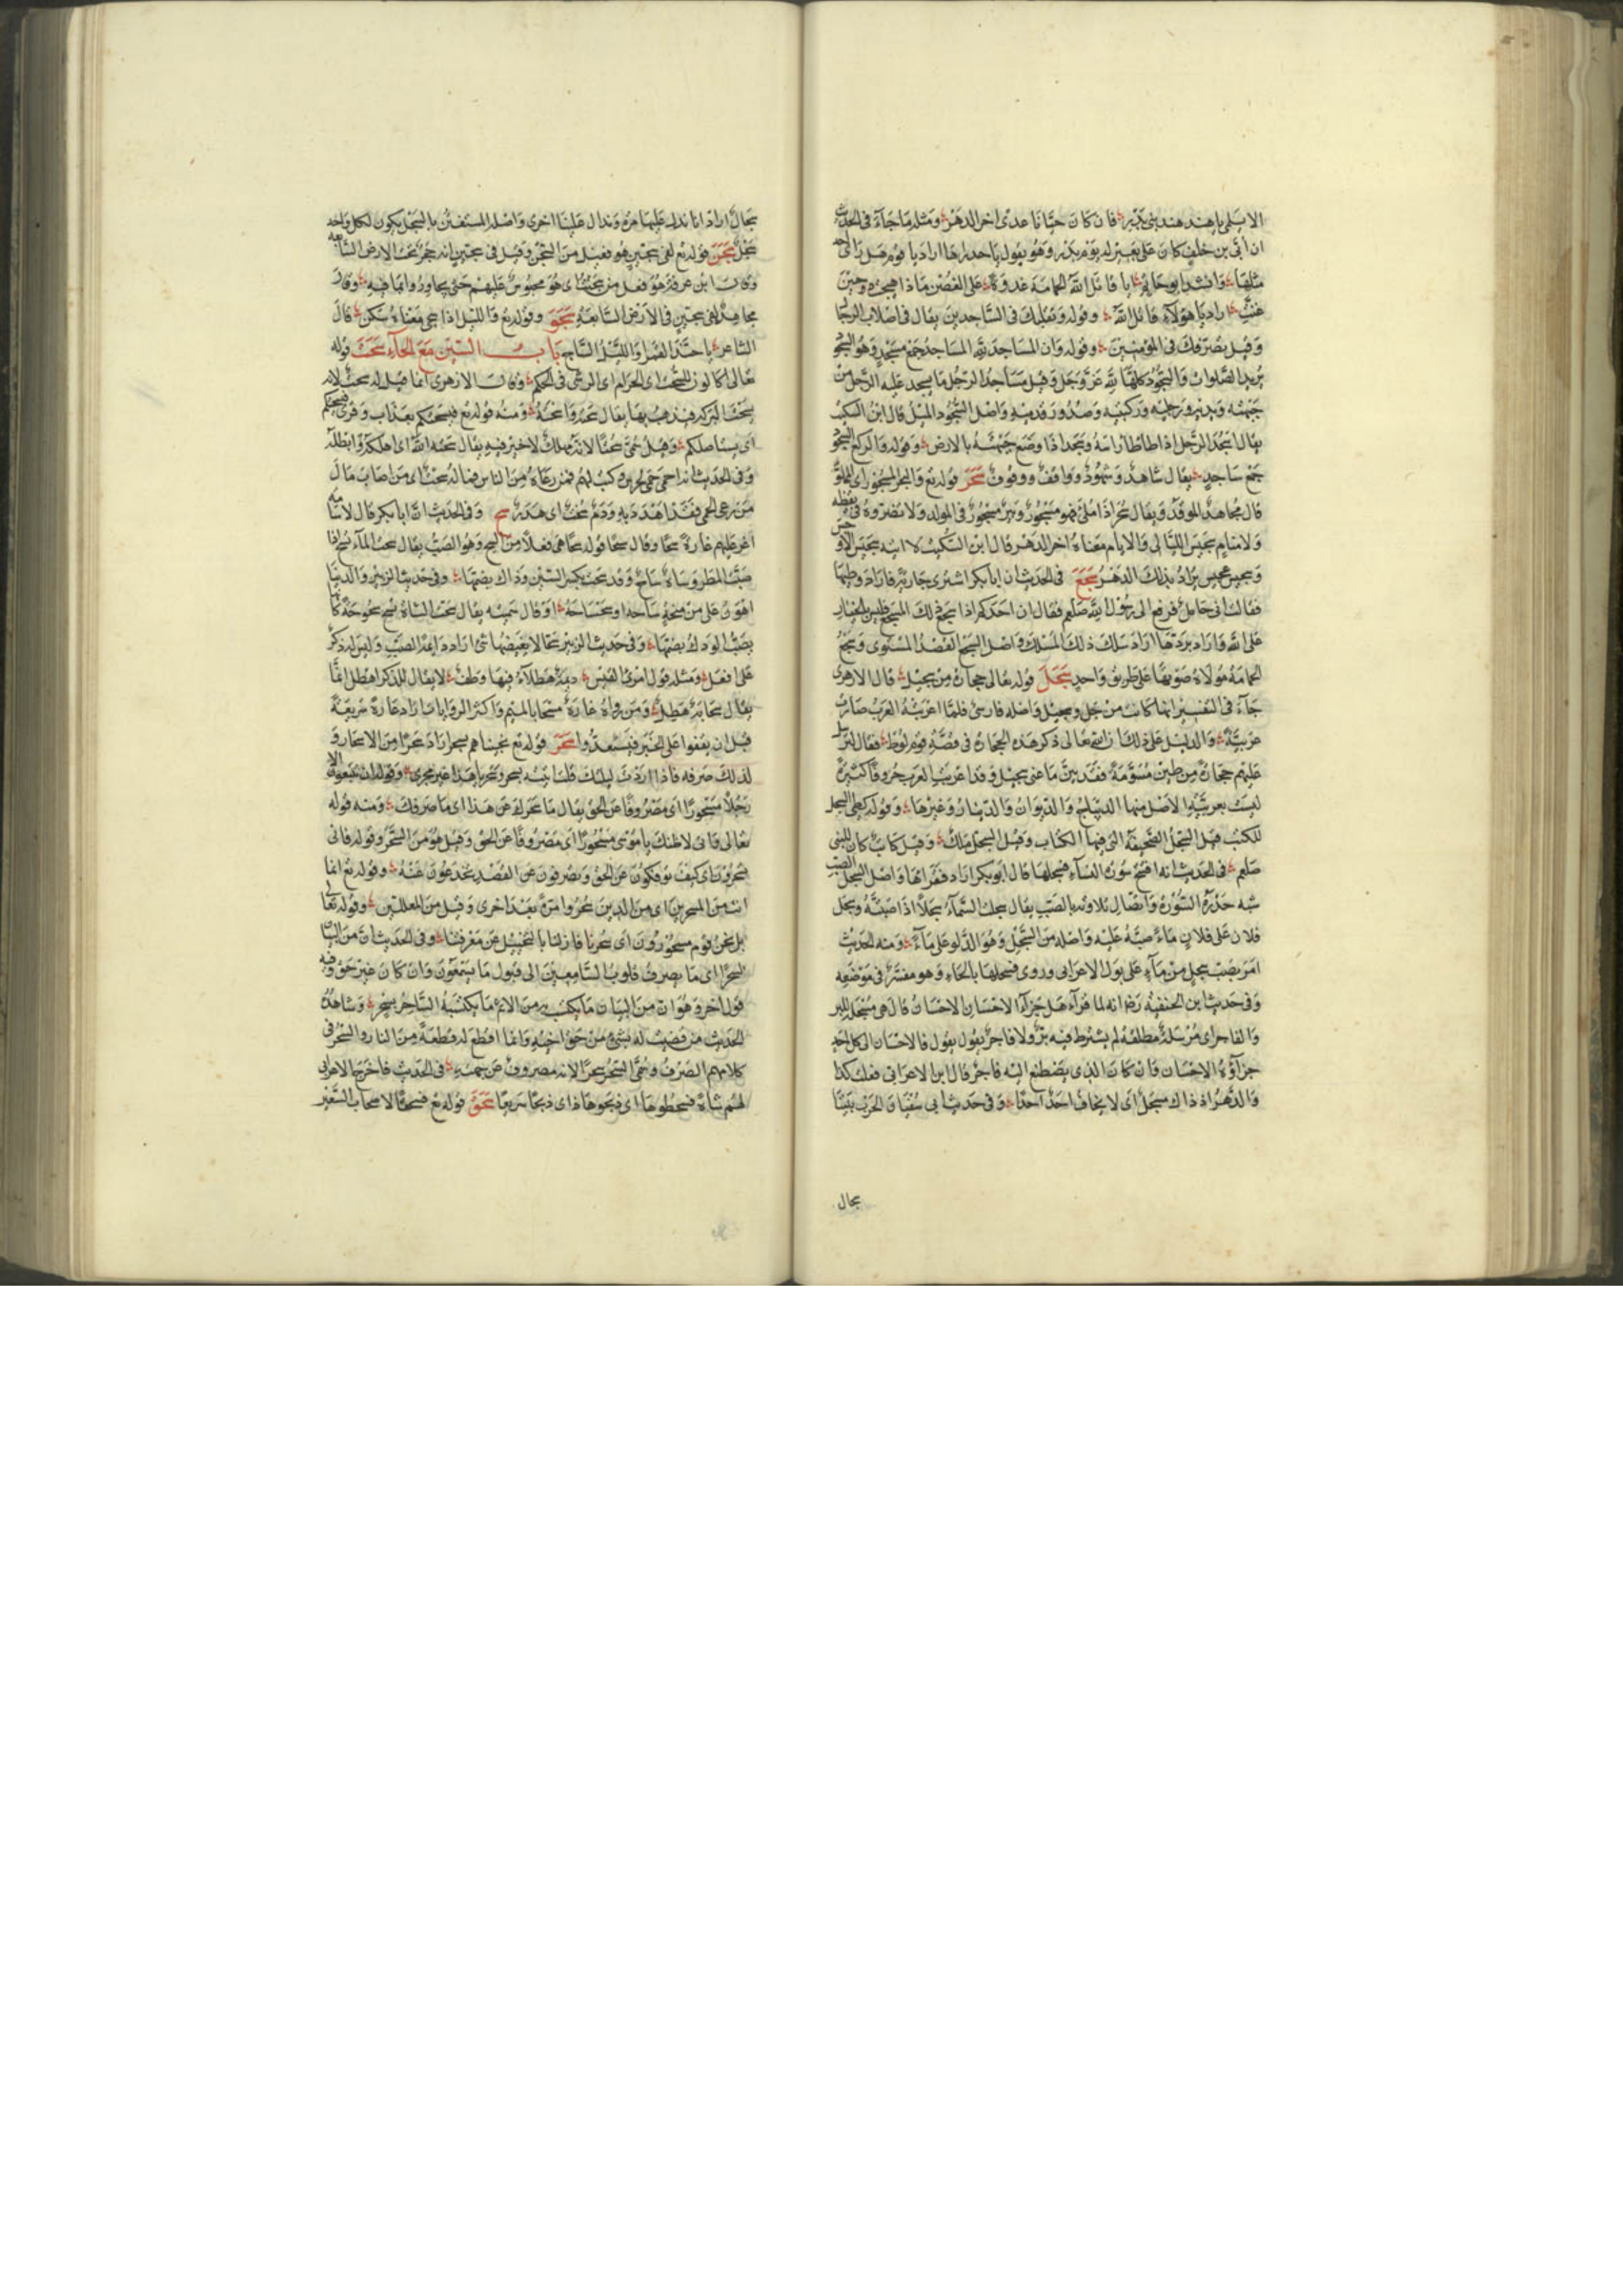 الا يسلمى يا هند هند بنى بدر فان كان حيانا عدى اخر الدهر ومثله ما جآء فى الحديث
ان ابى بن خلف كان على بعير له يوم بدر وهو يقول يا حدراها اراد يا قوم هل راى احد
مثلها وانشد ابو حاتم يا قاتل الله الحمامة غدوة على الغصن ماذا هيجت حين
غنت اراد يا هؤلآء قاتل الله وقوله وتقلبك فى الساجدين يقال فى اصلاب الرجال
وقيل تصرفك فى المؤمنين وقوله وان المساجد لله المساجد جمع مسجد وهو السجود
يريد الصلوات والسجود كلها لله عز وجل وقيل مساجد الرجل ما يسجد عليه الرجل من
جبهته ويديه ورجليه وركبتيه وصدور قدميه واصل السجود الميل قال ابن السكيت
يقال اسجد الرجل اذا طاطا راسه وسجد اذا وضع جبهته بالارض وقوله والركع السجود
جمع ساجد يقال شاهد وشهود وواقف ووقوف سجر قوله تع والبحر المسجور اى المملو
قال مجاهد الموقد ويقال سجر اذا ملئ فهو مسجور وبئر مسجور فى المولد ولا تضروه فى يقظه
ولا منايم سجيس الليالى والايام معناه اخر الدهر قال ابن السكيت لا اتيه سجيس الاوجس
وسجيس عجيس يراد بذلك الدهر سجع فى الحديث ان ابا بكر اشترى جارية فاراد وطيها
فقالت انى حامل فرفع الى رسول الله صلعم فقال ان احدكم اذا سجع ذلك المسجع فليس بالخيار
على الله واراد بردتها اراد سلك ذلك المسلك واصل السجع القصد المستوى وسجع
الحمامة موالاة صوتها على طريق واحد سجل قوله تعالى حجارة من سجيل قال الازهرى
جآء فى التفسير انها كانت من جل وسجيل واصله فارسى فلما اعربته العرب صارت
عربية والدليل على ذلك ان الله تعالى ذكر هذه الحجارة فى قصة قوم لوط فقال لنرسل
عليهم حجارة من طين مسومة فقد بين ما عنى بسجيل وقد اعربت العرب حروفا كثيرة
ليست بعربية الاصل منها الديباج والديوان والدينار وغيرها وقوله كطى السجل
للكتب قيل السجل الصحيفة التى فيها الكتاب وقيل السجل ملك وقيل كاتب كان للنبى
صلعم فى الحديث انه افتتح سورة النسآء فسجلها قال ابو بكر اراد فقراها واصل السجل الصب
شبه حدره السورة واتصال تلاوته بالصب يقال سجلت السمآء سجلا اذا صبته وسجل
فلان على فلان مآء صبه عليه واصله من السجل وهو الدلو على مآء ومنه الحديث
امر بصب سجل من مآء على بول الاعرابى وروى فسحلها بالحاء وهو مفسر فى موضعه
وفى حديث ابن الحنفية رض انه لما قرآ هل جزآء الاحسان الا الاحسان قال هى مسجلة للبر
والفاجر اى مرسلة مطلقة لم يشترط فيه بر ولا فاجر يقول يقول فالاحسان الى كل احد
جزآؤه الاحسان وان كان الذى يصطنع اليه فاجر قال ابن الاعرابى فعلت كذا
والدهر اذ ذاك مسجل اى لا يخاف احد احدا وفى حديث ابى سفيان الحرب بيننا
سجال
سجال اراد انا ندال عليها مرة وتدال علينا اخرى واصله المستقين بالسجل يكون لكل واحد
سجل سجن قوله تع لفى سجين هو فعيل من السجن وقيل فى سجين انه حجر تحت الارض السابعه
وقال ابن عرفة هو فعيل من سجنت اى هو محبوس عليهم حتى يجاوزوا بما فيه وقال
مجاهد لفى سجين فى الارض السابعة سجو وقوله تع والليل اذا سجى معناه سكن قال
الشاعر يا حبذا القمرا والليل الساج باب السين مع الحآء سحت قوله
تعالى اكالون للسحت اى الحرام اى الرشى فى الحكم وقال الازهرى انما قيل له سحت لانه
يسحت البركه فيذهب بها يقال سحته واسحته ومنه قوله تع فيسحتكم بعذاب وقرئ فيسحتكم
اى يستاصلكم وقيل سمى سحتا لانه مهلك لا خير فيه يقال سحته الله اى اهلكه وابطله
وفى الحديث انه احمى حمى لجرش وكتب لهم فمن رعاه من الناس فماله سحت اى من اصاب مال
من رعى الحمى فقد اهدد به ودم سحت اى هدر سح وفى الحديث ان ابا بكر قال لاسامه
اغر عليهم غارة سحا وقال سحا قوله سحا هى فعلا من السح وهو الصب يقال سحت المآء سح اذا
صب المطر وساة ساح وقد سحت بكسر السين وذاك بضمها وفى حديث الزبير والدنيا
اهون على من منحة ساحه او سحساحة وقال شميه يقال سحت الشاة تسح سحوحة كانها
تصب الودك بضمها وفى حديث الزبير سحا لا يغيضها شئ اراد دائمة الصب وليس له ذكر
على افعل ومثله قول امرئ القيس ديمة هطلآء فيها وطف لا يقال للذكر اهطل انما
يقال سحابة هطل ومن رواه غارة مسحا بالميم واكثر الروايات اراد غارة سريعة
قبل ان يقفوا على الخبر فيستعدوا سحر قوله تع نجيناهم بسحر اراد سحرا من الاسحار و
لذلك صرفه فاذا اردت ليلتك قلت اتيته بسحر وسحر يا هذا غير مجرى وقوله ان تتبعون الا
رجلا مسحورا اى مصروفا عن الحق يقال ما سحرك عن هذا اى ما صرفك ومنه قوله
تعالى فانى لاظنك يا موسى مسحورا اى مصروفا عن الحق وقيل هو من السحر وقوله فانى
تسحرون اى كيف تؤفكون عن الحق وتصرفون عن القصد تخدعون عنه وقوله تع انما
انت من المسحرين اى من الذين سحروا مرة بعد اخرى وقيل من المعللين وقوله تعالى
بل نحن قوم مسحورون اى سحرنا فازلنا بالتخييل عن معرفتنا وفى الحديث ان من البيان
لسحرا اى ما يصرف قلوب السامعين الى قبول ما يسمعون وان كان غير حق وفيه
قول اخر وهو ان من البيان ما يكتسب به من الاثم ما يكتسبه الساحر بسحره وشاهده
الحديث من قضيت له بشئ من حق اخيه وانما اقطع له قطعة من النار والسحر فى
كلامهم الصرف وسمى السحر سحرا لانه مصروف عن جهته فى الحديث فاخرجها الاعرابى
لهم شاة فسحطوها اى ذبحوها ذاى ذبحا سريعا سحق قوله تع فسحقا لاصحاب السعير